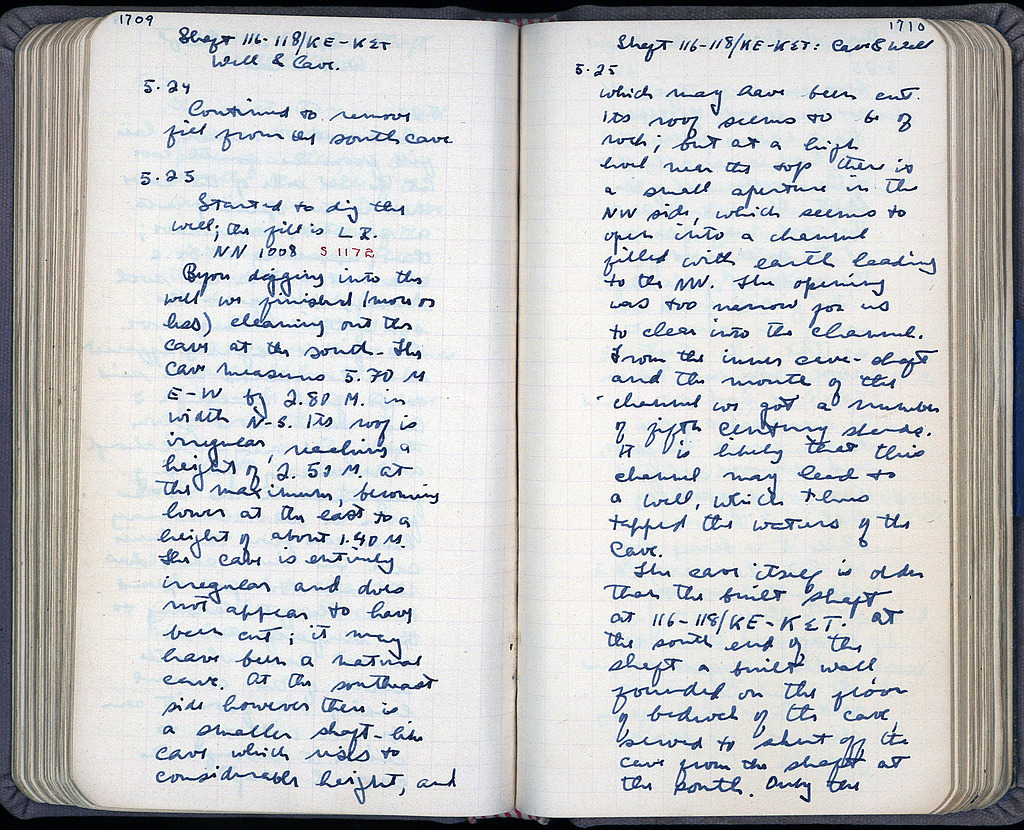 1709
Shaft 116-118/ΚΕ-ΚΣΤ
Well & Cave.
5.24
Continued to remove
fill from the south cave
5.25
Started to dig the
well; the fill is L.R.
NN 1008 S 1172
digging into the
well we finished (more or
less) cleaning out the
cave at the south. The
cave measures 5.70 M
E-W by 2.80 M. in
width N-S. Its roof is
irregular, reaching a
height of 2.50 M. at
the maximum, becoming
lower at the east to a
height of about 1.40 M.
The cave is entirely
irregular and does
not appear to have
been cut; it may
have been a natural
cave. At the southeast
side however there is
a smaller shaft-like
cave which rises to
considerable height, and
1710
Shaft 116-118/ΚΕ-ΚΣΤ: Cave & Well
5.25
which may have been cut.
Its roof seems to be of
rock; but at a high
level near the top there is
a small aperture in the
NW side, which seems to
open into a channel
filled with earth leading
to the NW. The opening
was too narrow for us
to clear into the channel.
From the inner cave-shaft
and the mouth of the
channel we got a number
of fifth century sherds.
It is likely that this
channel may lead to
a well, which thus
tapped the waters of the
Cave.
The cave itself is older
than the built shaft
at 116-118/ΚΕ-ΚΣΤ. At
the south end of the
shaft a built wall
founded on the floor
of bedrock of the cave,
served to shut off the
cave from the shaft at
the south. Only the